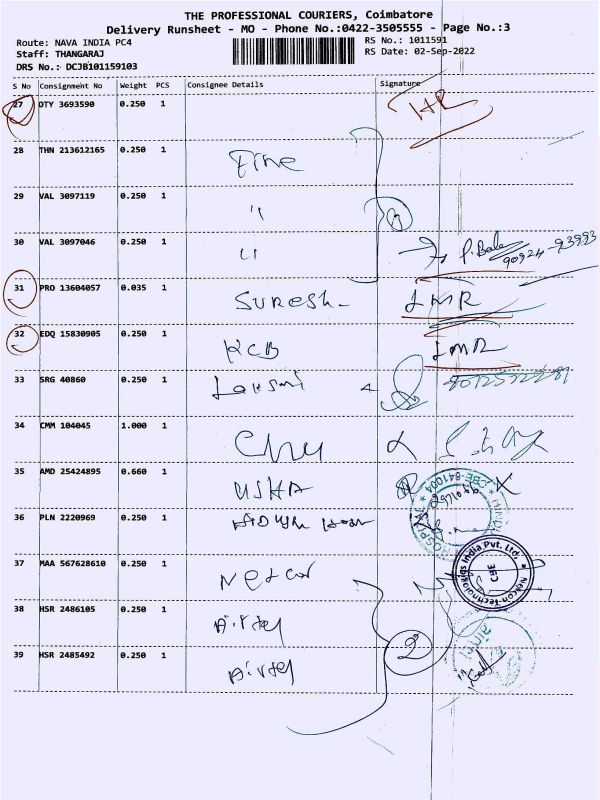 THE PROFESSIONAL COURIERS, Coimbatore
Delivery Runsheet - MO - Phone No.:0422-3505555 - Page No.:3
Route: NAVA INDIA PC4
RS No.: 1011591
Staff: THANGARAJ
RS Date: 02-Sep-2022
DRS No.: DCJB101159103
S No Consignment No Weight PCS Consignee Details Signature
27 DTY 3693590 0.250 1
28 THN 213612165 0.250 1 Fine
29 VAL 3097119 0.250 1 "
30 VAL 3097046 0.250 1 "
31 PRO 13604057 0.035 1 SURESH IMR
32 EDQ 15830905 0.250 1 KCB IMR
33 SRG 40860 0.250 1 Laxsmi
34 CMM 104045 1.000 1
35 AMD 25424895 0.660 1 USHA
36 PLN 2220969 0.250 1
37 MAA 567628610 0.250 1 Netcon
Netcon Technologies India Pvt. Ltd.
CBE
38 HSR 2486105 0.250 1 Airtel
2
39 HSR 2485492 0.250 1 Airtel